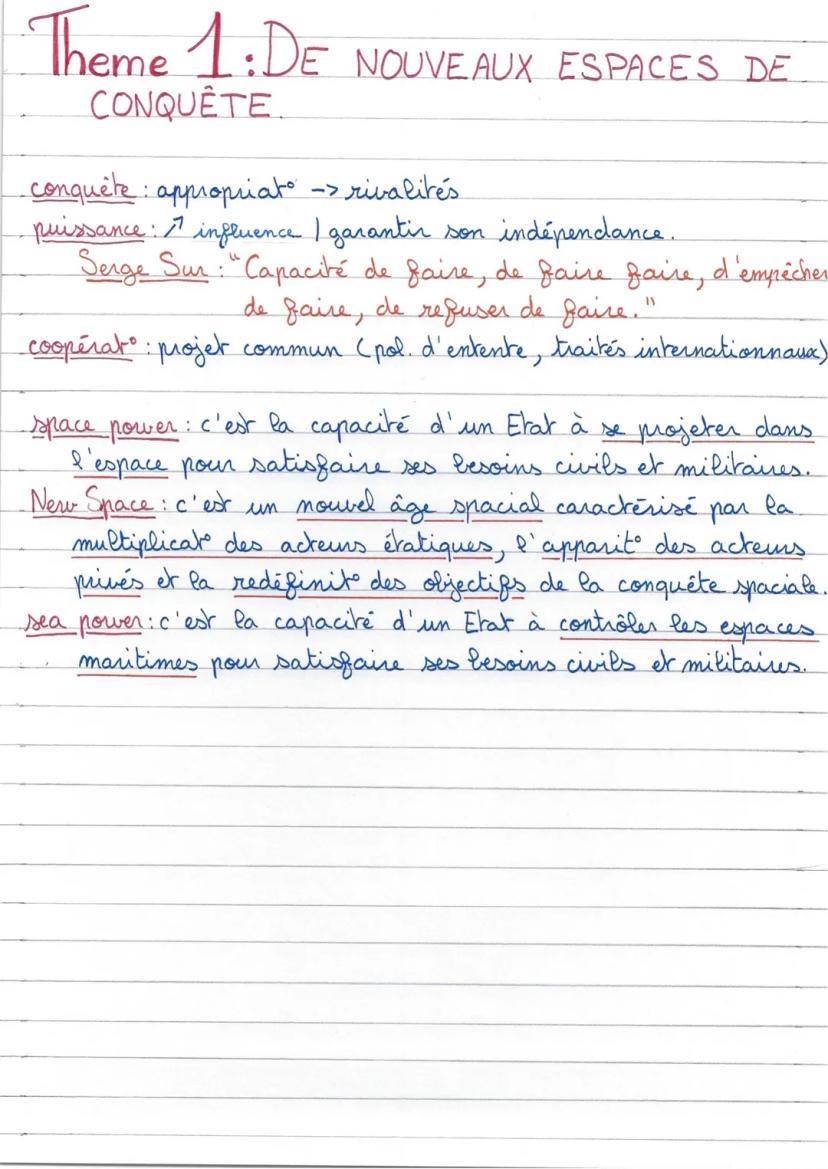 Theme 1: DE NOUVEAUX ESPACES DE
CONQUÊTE.
conquête : appropriat° -> rivalités
puissance : ↗ influence / garantir son indépendance.
Serge Sur : "Capacité de faire, de faire faire, d'empêcher
de faire, de refuser de faire."
coopérat° : projet commun (pol. d'entente, traités internationnaux)
space power : c'est la capacité d'un Etat à se projeter dans
l'espace pour satisfaire ses besoins civils et militaires.
New Space : c'est un nouvel âge spacial caractérisé par la
multiplicat° des acteurs étatiques, l'apparit° des acteurs
privés et la redéfinit° des objectifs de la conquête spaciale.
sea power : c'est la capacité d'un Etat à contrôler les espaces
maritimes pour satisfaire ses besoins civils et militaires.